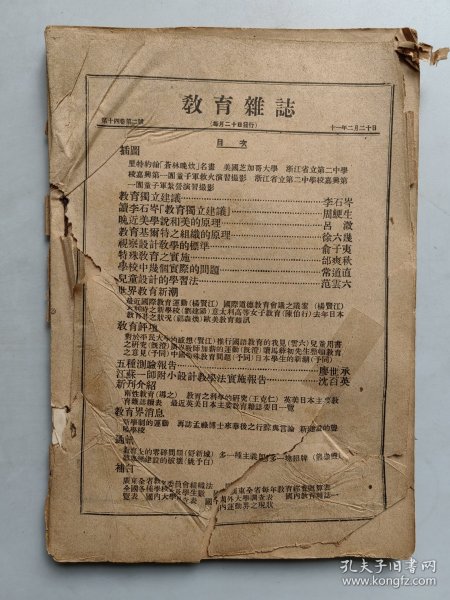 教育雜誌
第十四卷第二號
（每月二十日發行）
十一年二月二十日
目次
插圖
里特約翰「蒼林晚炊」名畫　美國芝加哥大學　浙江省立第二中學
校嘉興第一團童子軍救火演習撮影　浙江省立第二中學校嘉興第
一團童子軍紮營演習撮影
教育獨立建議……李石岑
讀李石岑「教育獨立建議」……周鯁生
晚近美學說和美的原理……呂澂
教育基爾特之組織的原理……徐六幾
視察設計教學的標準……俞子夷
特殊教育之實施……邰爽秋
學校中幾個實際的問題……常道直
兒童設計的學習法……范雲六
世界教育新潮
最近國際教育運動（楊賢江）　國際道德教育會議之議案（楊賢江）
之新學校（劉建陽）意大利高等女子教育（陳伯行）去年日本
教育界之狀況（郝森煥）歐美教育短訊
教育評壇
對於平民大學的感想（賢江）推行國語教育的我見（雲六）兒童用書
之研究（既澄）
之意見（予同）中國特殊教育問題（予同）日本學生的新潮（予同）
五種測驗報告……廖世承
江蘇一師附小設計教學法實施報告……沈百英
新刊介紹
兩性教育（導之）　教育之科學的研究（王克仁）　英美日本主要教
育雜誌調表　最近英美日本主要教育雜誌要目一覽
教育界消息
新學制的運動　再誌孟祿博士來華後之行蹤與言論　新
通訊
教育上的零碎問題（舒新城）多一種主義
建設的破壞（姚予白）
補白
廣東全省教育委員會組織法　廣東全省每年教育經費預算表
全國各種學校
覽表　國內大學　國外大學調查表　國內教育雜誌一
國內運動界之現狀
孔夫子旧书网
www.kongfz.com